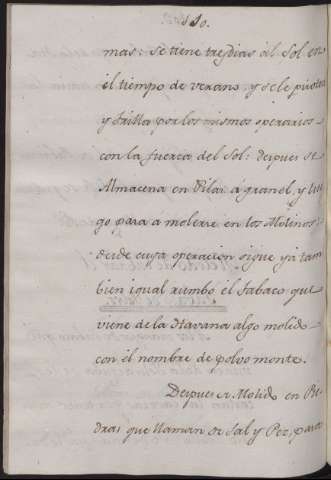 110.
mas: se tiene tres dias ál Sol en
el tiempo de verano, y se le pivotea
y trilla por los mismos operarios
con la fuerza del Sol: despues se
Almacena en Pilas á granel y lue
go para á molerse en los Molinos:
desde cuya operacion sigue yá tam
bien igual rumbo el tabaco que
viene de la Havana algo molido
con el nombre de polvo monte.
Despues de Molido en Pie
dras que llaman de Sal y Pez, para